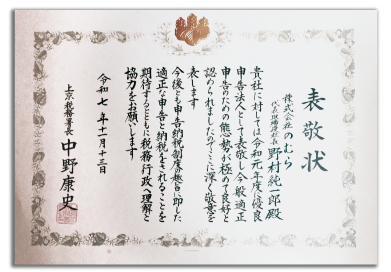 表敬状
株式会社のむら
代表取締役社長 野村純一郎殿
貴社に対しては令和元年度優良
申告法人として表敬し今般適正
申告のための態勢が極めて良好と
認められましたのでここに深く敬意を
表します
今後とも申告納税制度の趣旨に即した
適正な申告と納税をされることを
期待するとともに税務行政へ理解と
協力をお願いします
令和七年十一月十三日
上京税務署長 中野康史